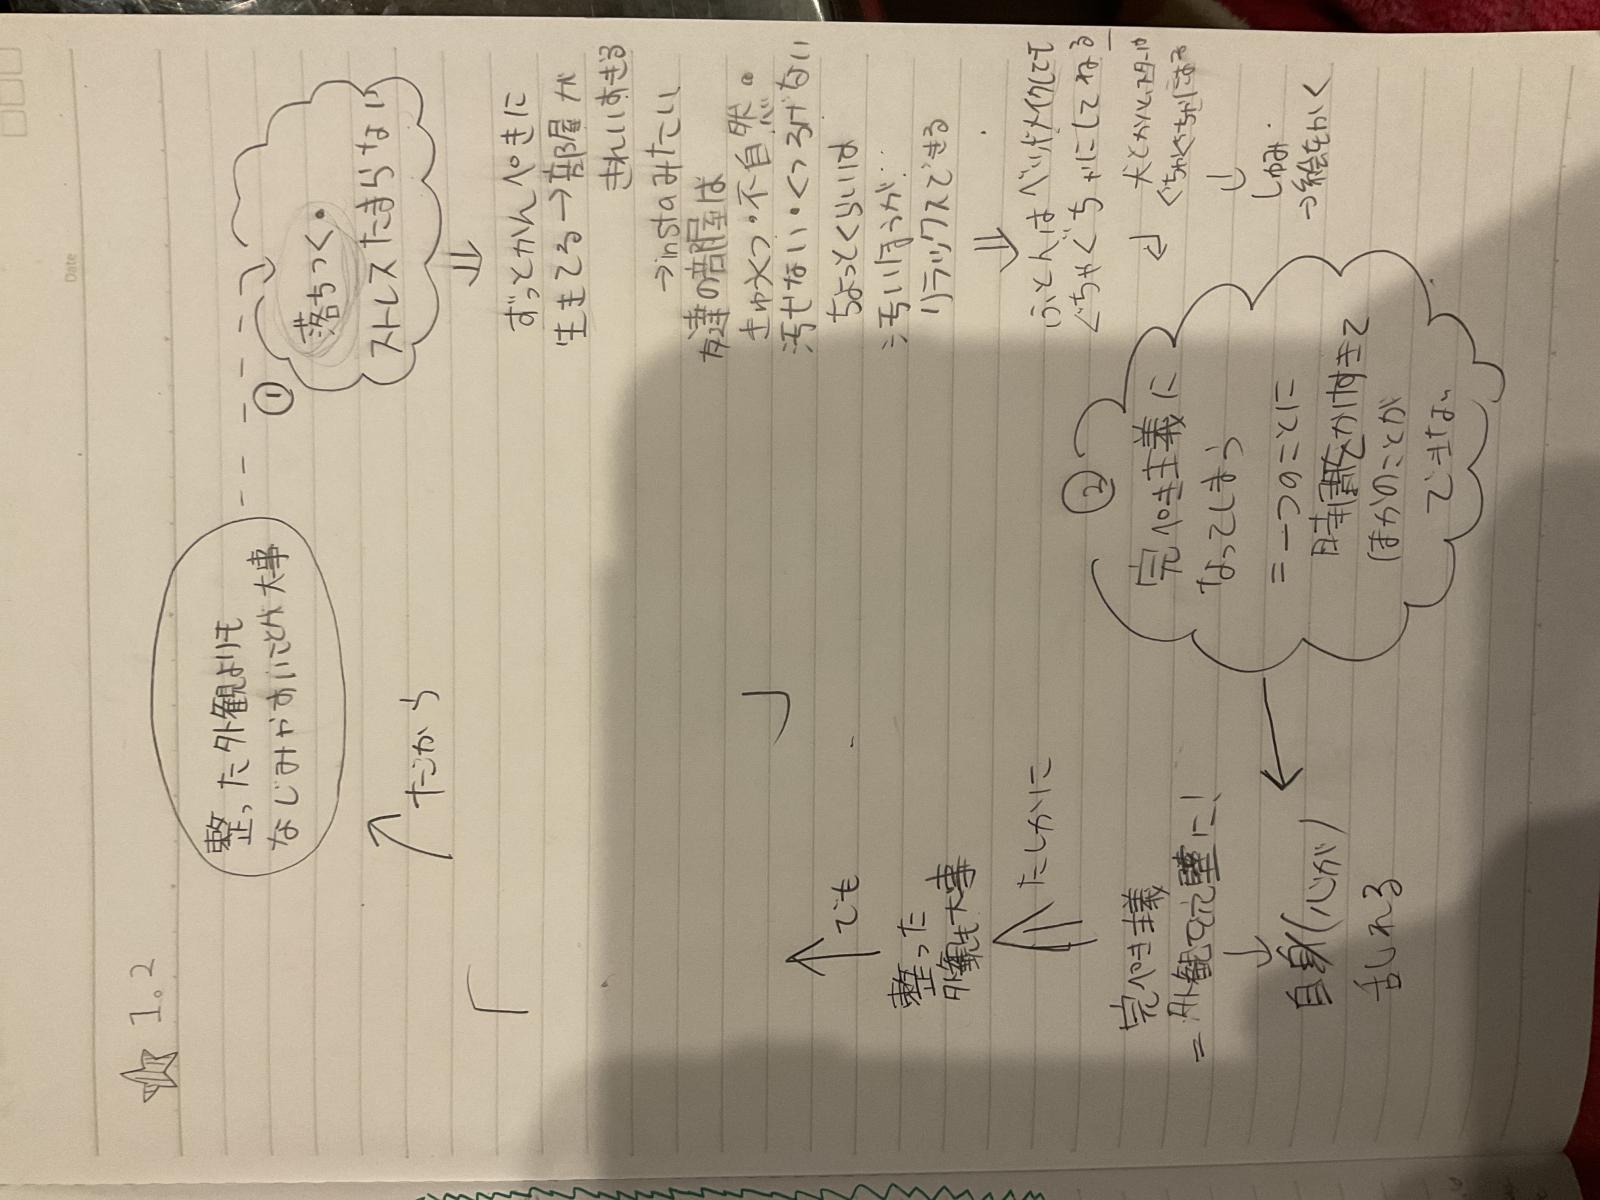 Date
☆ 1.2
整った外観よりも
なじみやすいことが大事
①
落ちつく・
ストレスたまらない
⇓
ずっとかんぺきに
生きてる→部屋が
きれいすぎる
→instaみたい
友達の部屋は
きゅくつ・不自然。
汚せない・くつろげない
ちょっとくらいは
汚いほうが…
リラックスできる
⇓
ふとんはベッドメイクしても
ぐちゃぐちゃにしてねる
ぐちゃぐちゃになる
↓
しゅみ
→絵をかく
だから
「
」
でも
整った
外観も大事
たしかに
完ぺき主義
=外観を完璧に!
↓
自身(心が)
乱れる
②
完ぺき主義に
なってしまう
=一つのことに
時間をかけすぎて
ほかのことが
できない